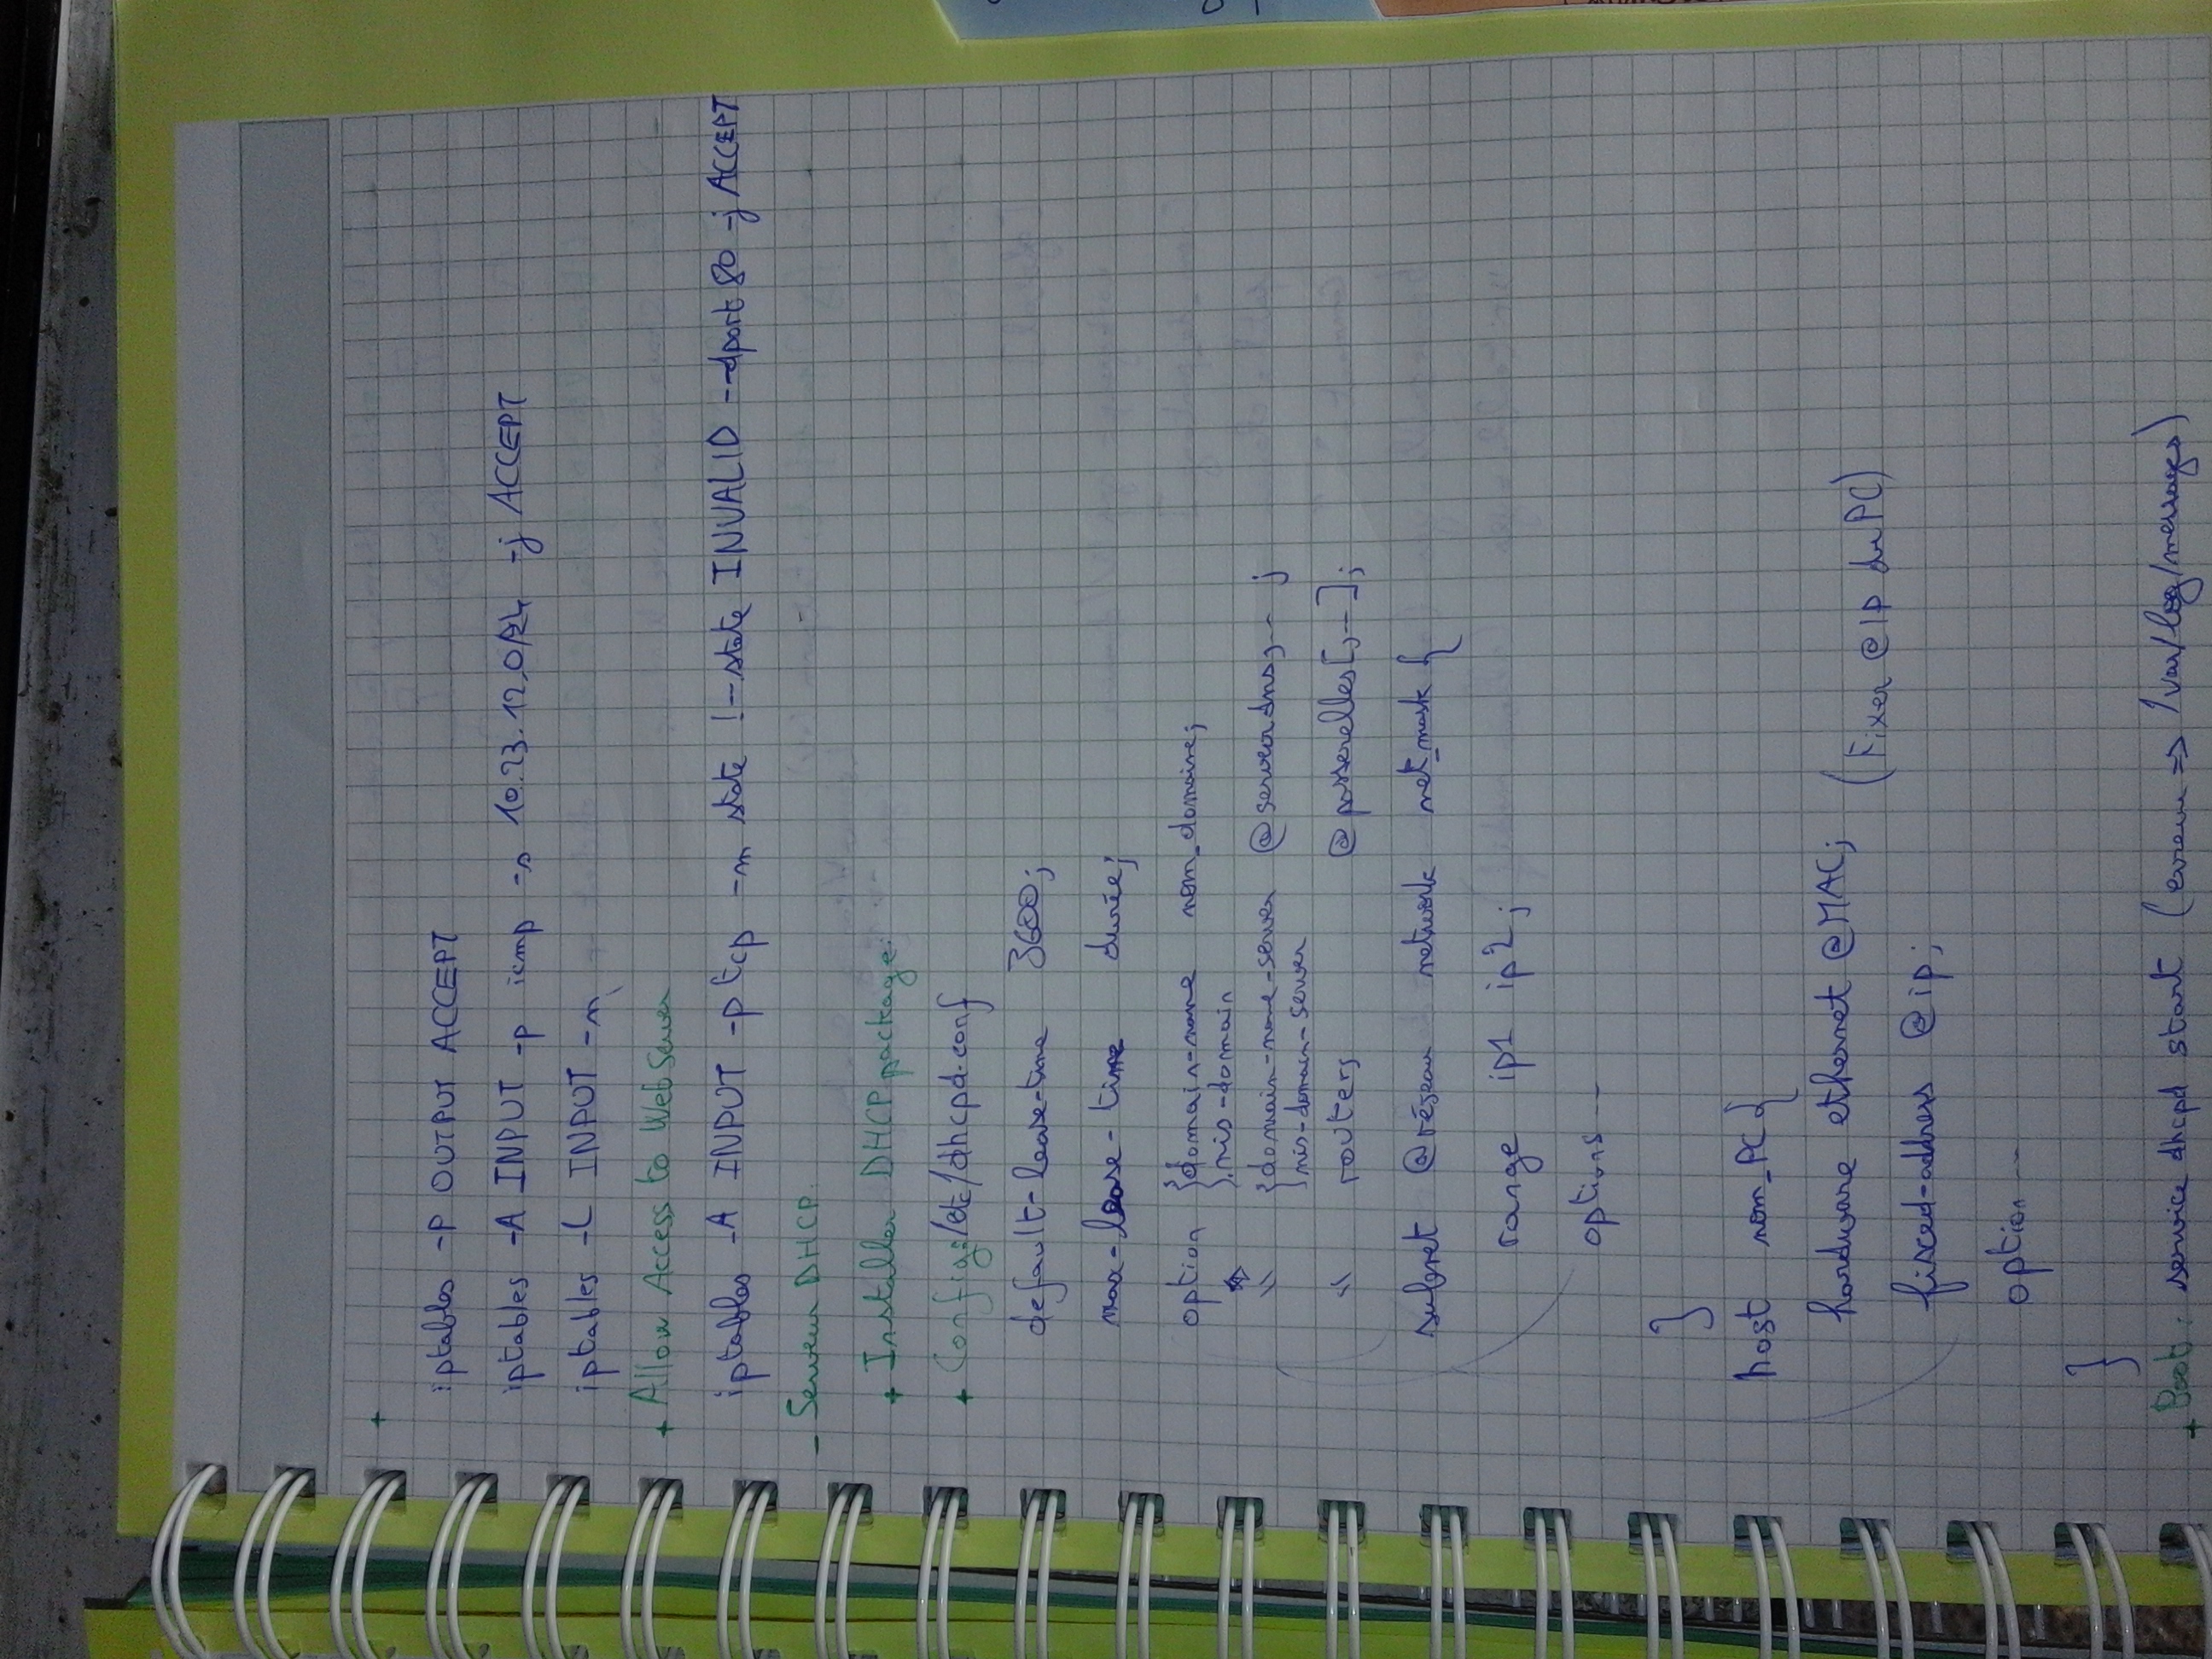 +
iptables -P OUTPUT ACCEPT
iptables -A INPUT -p icmp -s 10.23.12.0/24 -j ACCEPT
iptables -L INPUT -n
+ Allow Access to Web Server
iptables -A INPUT -p tcp -m state !--state INVALID --dport 80 -j ACCEPT
- Serveur DHCP.
+ Installer DHCP package:
+ Config: /etc/dhcpd.conf
default-lease-time 3600;
max-lease-time durée;
option {domain-name nom_domaine;
nis-domain
" {domain-name-server @serveur dns,-- ;
nis-domain-server
" routers @passerelles[,--];
subnet @réseau network net_mask {
range ip1 ip2;
options --
}
host nom_PC {
hardware ethernet @MAC;
(Fixer @IP du PC)
fixed-address @ip;
option --
}
+ Boot: service dhcpd start (erreur => /var/log/messages)